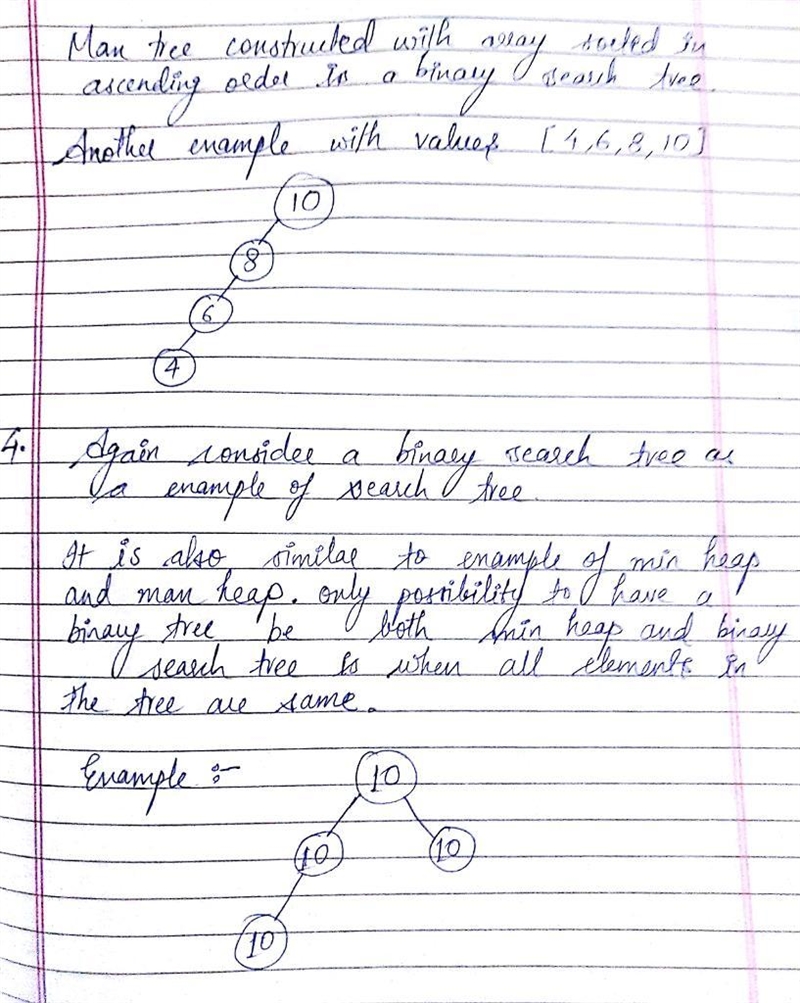 Max tree constructed with array sorted in
ascending order is a binary search tree.
Another example with values [4,6,8,10]
10
8
6
4
4. Again consider a binary search tree as
a example of search tree.
It is also similar to example of min heap
and max heap. only possibility to have a
binary tree be both min heap and binary
search tree is when all elements in
the tree are same.
Example :-
10
10 10
10